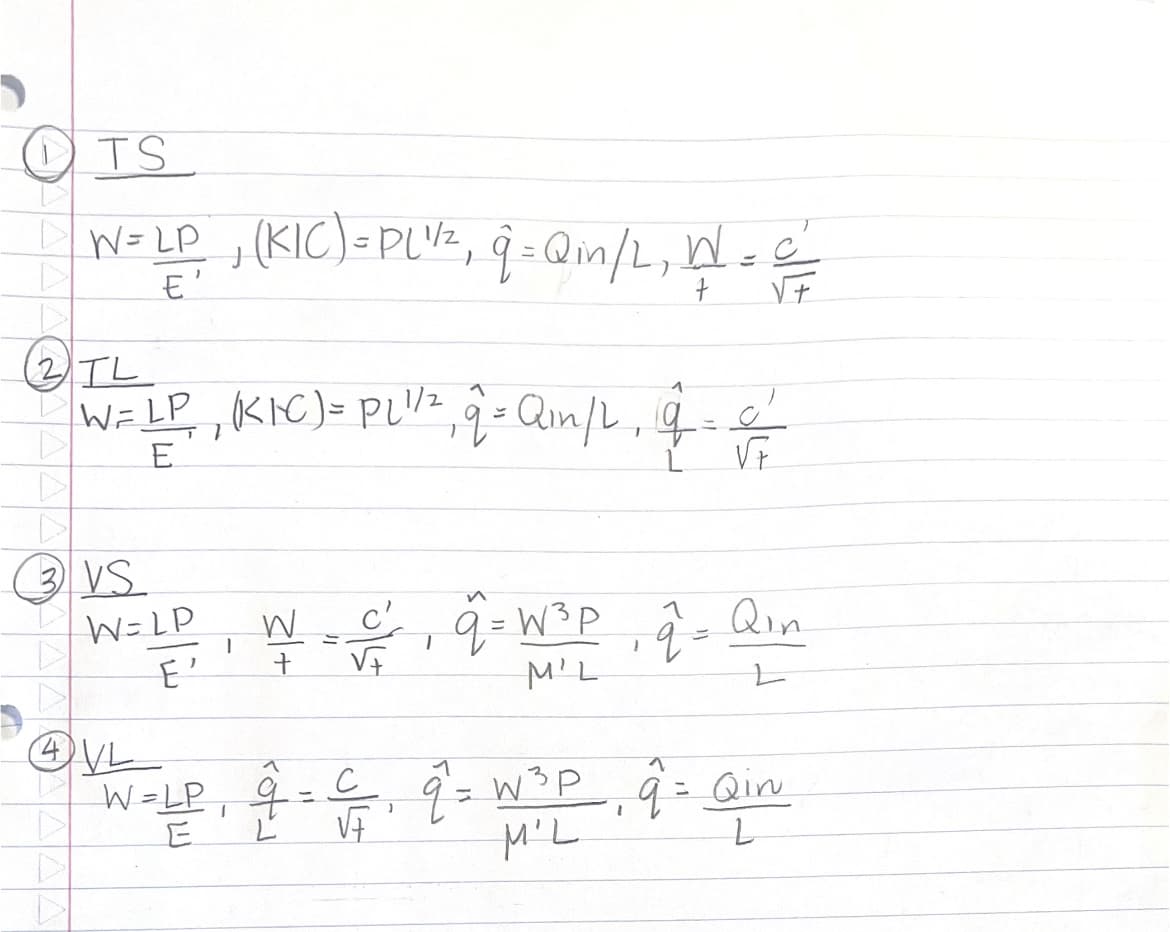 ① TS
W = LP/E', (KIC) = PL^1/2, q̂ = Qin/L, W/t = c'/√t
② TL
W = LP/E', (KIC) = PL^1/2, q̂ = Qin/L, q̂/L = c'/√t
③ VS
W = LP/E', W/t = c'/√t, q̂ = W³P/M'L, q̂ = Qin/L
④ VL
W = LP/E, q̂/L = C/√t, q̂ = W³P/M'L, q̂ = Qin/L